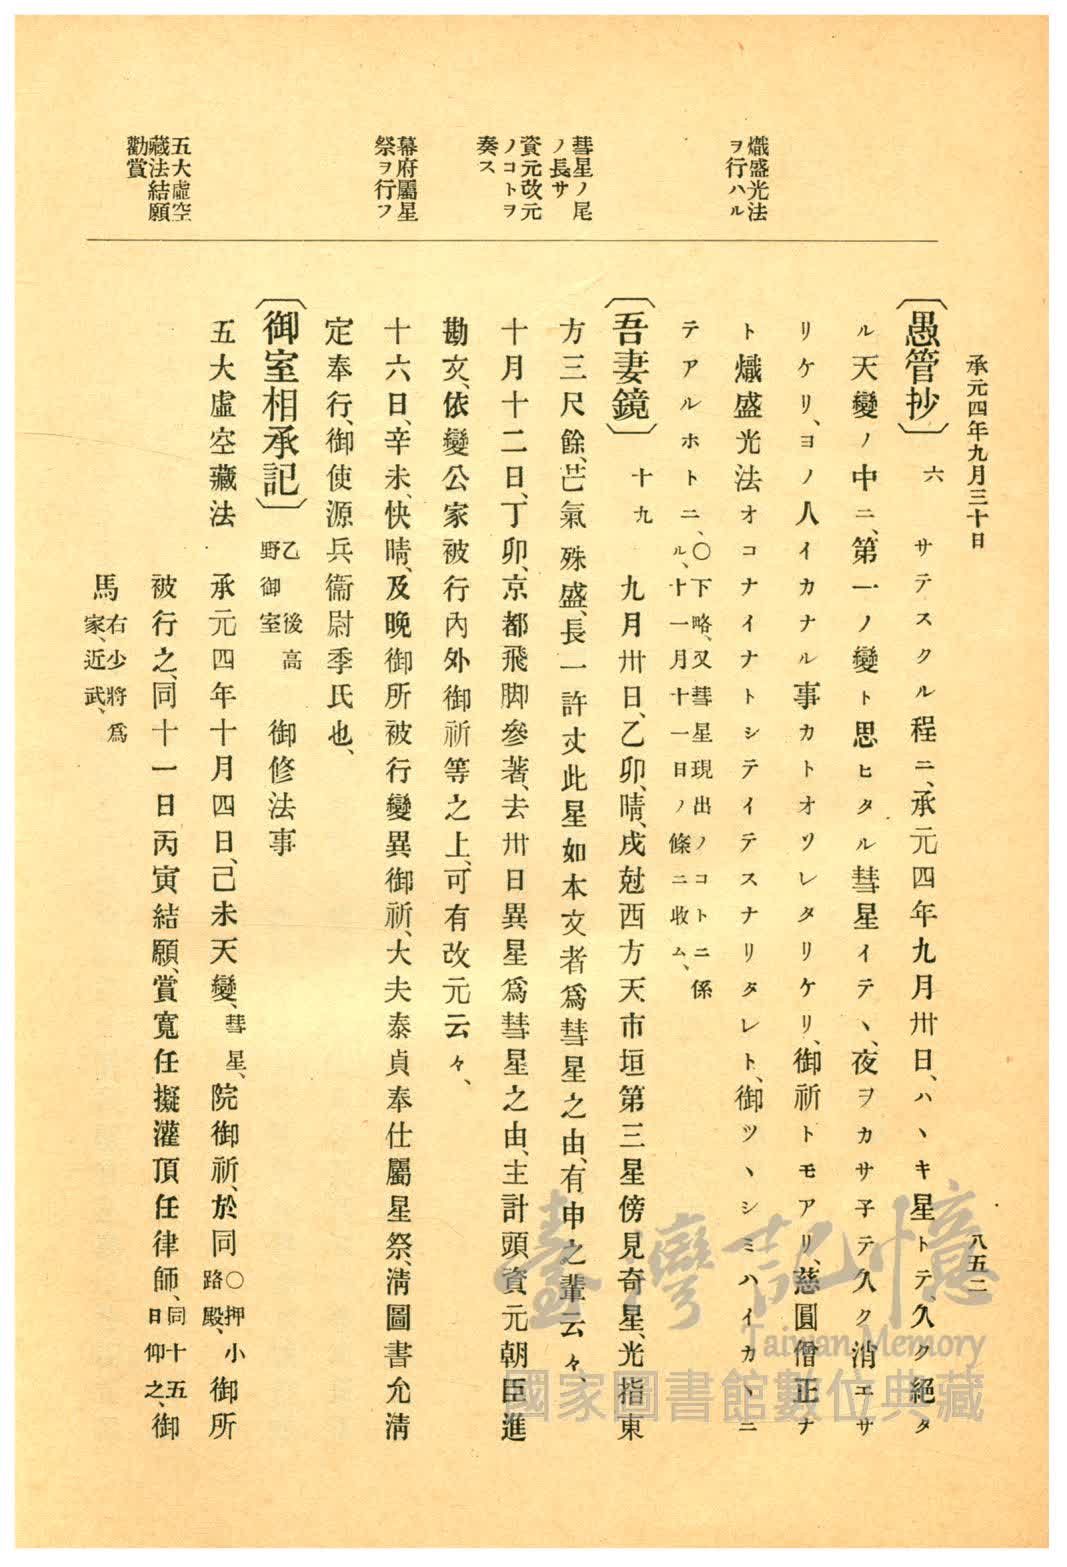 承元四年九月三十日
八五二
熾盛光法
ヲ行ハル
彗星ノ尾
ノ長サ
資元改元
ノコトヲ
奏ス
幕府屬星
祭ヲ行フ
五大虛空
藏法結願
勸賞
〔愚管抄〕六 サテスクル程ニ、承元四年九月卅日、ハヽキ星トテ、久ク絕タ
ル天變ノ中ニ、第一ノ變ト思ヒタル彗星イテヽ、夜ヲカサ子テ久ク消エサ
リケリ、ヨノ人イカナル事カトオソレタリケリ、御祈トモアリ、慈圓僧正ナ
ト熾盛光法オコナイナトシテイテスナリタレト、御ツヽシミハイカヽニ
テアルホトニ、〇下略、又彗星現出ノコトニ係
ル、十一月十一日ノ條ニ收ム、
〔吾妻鏡〕十九 九月卅日、乙卯、晴、戌尅西方天市垣第三星傍見奇星、光指東
方三尺餘、芒氣殊盛、長一許丈此星如本文者爲彗星之由、有申之輩云々、
十月十二日、丁卯、京都飛脚參著、去卅日異星爲彗星之由、主計頭資元朝臣進
勘文、依變公家被行內外御祈等之上、可有改元云々、
十六日、辛未、快晴、及晚御所被行變異御祈、大夫泰貞奉仕屬星祭、淸圖書允淸
定奉行、御使源兵衞尉季氏也、
〔御室相承記〕乙後高
野御室 御修法事
五大虛空藏法 承元四年十月四日、己未天變、彗星、院御祈、於同〇押小
路殿、御所
被行之、同十一日丙寅結願、賞寬任擬灌頂任律師、同十五
日仰之、御
馬右少將爲
家、近武、
臺灣記憶
Taiwan Memory
國家圖書館數位典藏